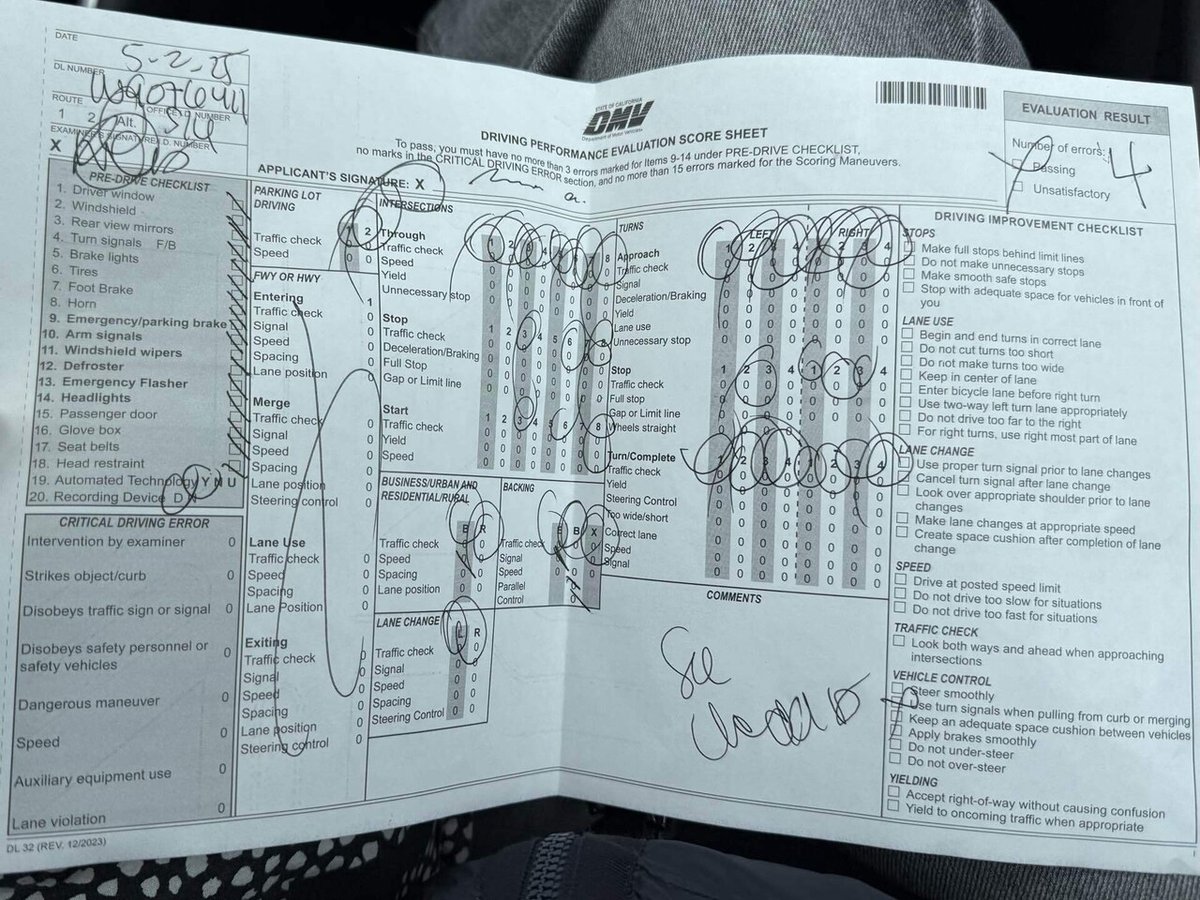 DATE
5-2-25
DL NUMBER
ROUTE
OFFICE I.D. NUMBER
1 2 Alt.
EXAMINER'S SIGNATURE/I.D. NUMBER
X
STATE OF CALIFORNIA
DMV
Department of Motor Vehicles
DRIVING PERFORMANCE EVALUATION SCORE SHEET
To pass, you must have no more than 3 errors marked for Items 9-14 under PRE-DRIVE CHECKLIST,
no marks in the CRITICAL DRIVING ERROR section, and no more than 15 errors marked for the Scoring Maneuvers.
APPLICANT'S SIGNATURE: X
EVALUATION RESULT
Number of errors: 4
Passing
Unsatisfactory
PRE-DRIVE CHECKLIST
1. Driver window
2. Windshield
3. Rear view mirrors
4. Turn signals F/B
5. Brake lights
6. Tires
7. Foot Brake
8. Horn
9. Emergency/parking brake
10. Arm signals
11. Windshield wipers
12. Defroster
13. Emergency Flasher
14. Headlights
15. Passenger door
16. Glove box
17. Seat belts
18. Head restraint
19. Automated Technology Y N U
20. Recording Device D
CRITICAL DRIVING ERROR
Intervention by examiner 0
Strikes object/curb 0
Disobeys traffic sign or signal 0
Disobeys safety personnel or
safety vehicles 0
Dangerous maneuver 0
Speed 0
Auxiliary equipment use 0
Lane violation 0
DL 32 (REV. 12/2023)
PARKING LOT
DRIVING
1 2
Traffic check 0 0
Speed 0 0
FWY OR HWY
Entering 1
Traffic check 0
Signal 0
Speed 0
Spacing 0
Lane position 0
Merge
Traffic check 0
Signal 0
Speed 0
Spacing 0
Lane position 0
Steering control 0
Lane Use
Traffic check 0
Speed 0
Spacing 0
Lane Position 0
Exiting
Traffic check 0
Signal 0
Speed 0
Spacing 0
Lane position 0
Steering control 0
INTERSECTIONS
Through 1 2 3 4 5 6 7 8
Traffic check
Speed
Yield
Unnecessary stop
Stop 1 2 3 4 5 6 7 8
Traffic check
Deceleration/Braking
Full Stop
Gap or Limit line
Start 1 2 3 4 5 6 7 8
Traffic check
Yield
Speed
BUSINESS/URBAN AND
RESIDENTIAL/RURAL
B R
Traffic check 0 0
Speed 0 0
Spacing 0 0
Lane position 0 0
BACKING
B X
Traffic check
Signal
Speed
Parallel
Control
LANE CHANGE
L R
Traffic check 0 0
Signal 0 0
Speed 0 0
Spacing 0 0
Steering Control 0 0
TURNS
LEFT RIGHT
Approach 1 2 3 4 1 2 3 4
Traffic check
Signal
Deceleration/Braking
Yield
Lane use
Unnecessary stop
Stop 1 2 3 4 1 2 3 4
Traffic check
Full stop
Gap or Limit line
Wheels straight
Turn/Complete 1 2 3 4 1 2 3 4
Traffic check
Yield
Steering Control
Too wide/short
Correct lane
Speed
Signal
COMMENTS
See
DRIVING IMPROVEMENT CHECKLIST
STOPS
Make full stops behind limit lines
Do not make unnecessary stops
Make smooth safe stops
Stop with adequate space for vehicles in front of
you
LANE USE
Begin and end turns in correct lane
Do not cut turns too short
Do not make turns too wide
Keep in center of lane
Enter bicycle lane before right turn
Use two-way left turn lane appropriately
Do not drive too far to the right
For right turns, use right most part of lane
LANE CHANGE
Use proper turn signal prior to lane changes
Cancel turn signal after lane change
Look over appropriate shoulder prior to lane
changes
Make lane changes at appropriate speed
Create space cushion after completion of lane
change
SPEED
Drive at posted speed limit
Do not drive too slow for situations
Do not drive too fast for situations
TRAFFIC CHECK
Look both ways and ahead when approaching
intersections
VEHICLE CONTROL
Steer smoothly
Use turn signals when pulling from curb or merging
Keep an adequate space cushion between vehicles
Apply brakes smoothly
Do not under-steer
Do not over-steer
YIELDING
Accept right-of-way without causing confusion
Yield to oncoming traffic when appropriate